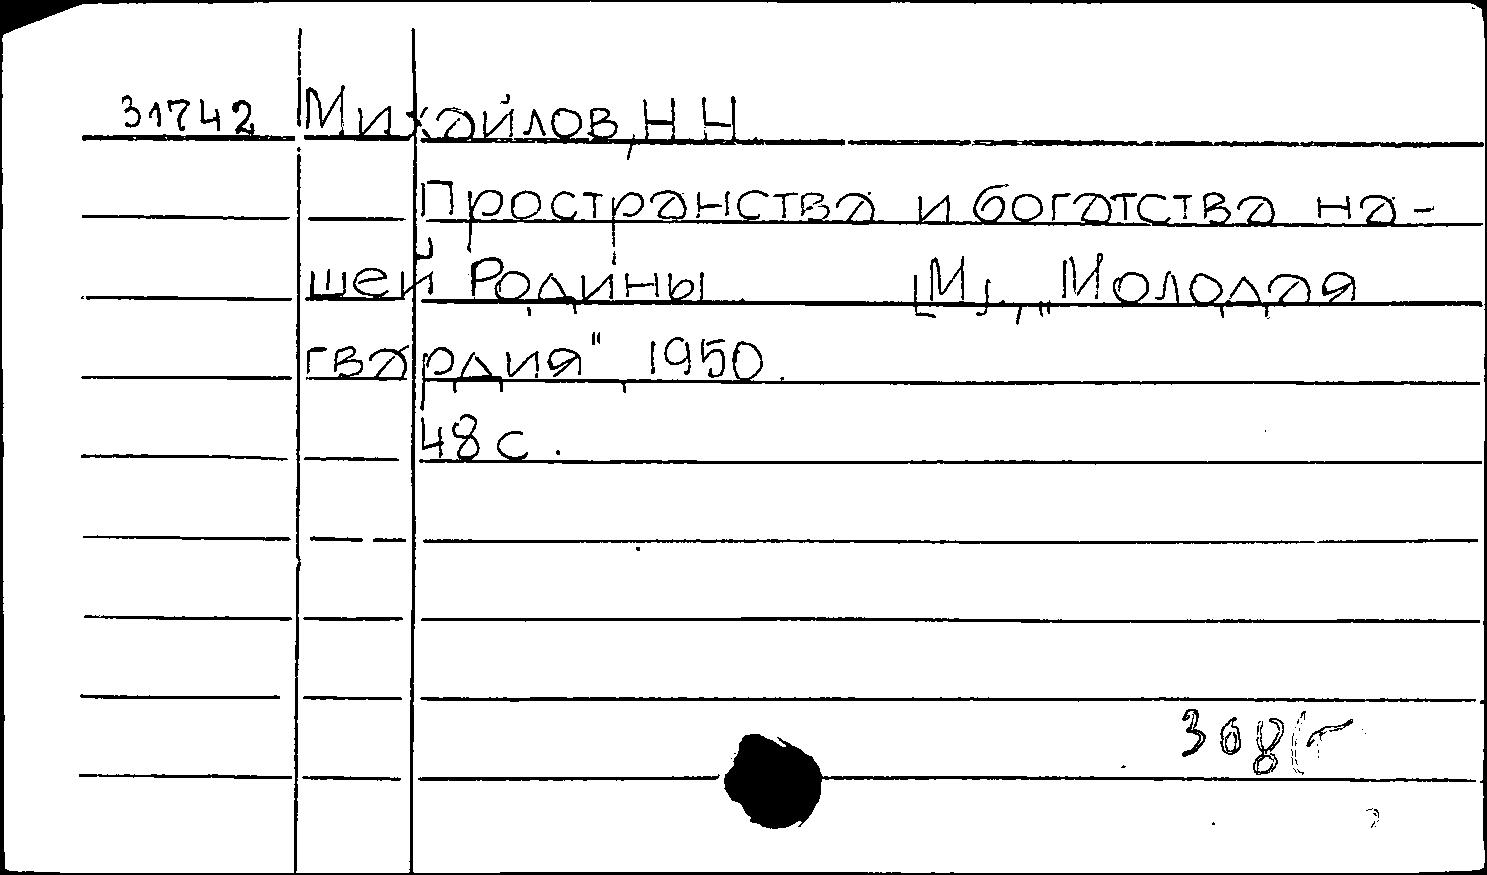 31742 Михайлов, Н Н
Пространства и богатства на-
шей Родины [М], „Молодая
гвардия", 1950.
48 с.